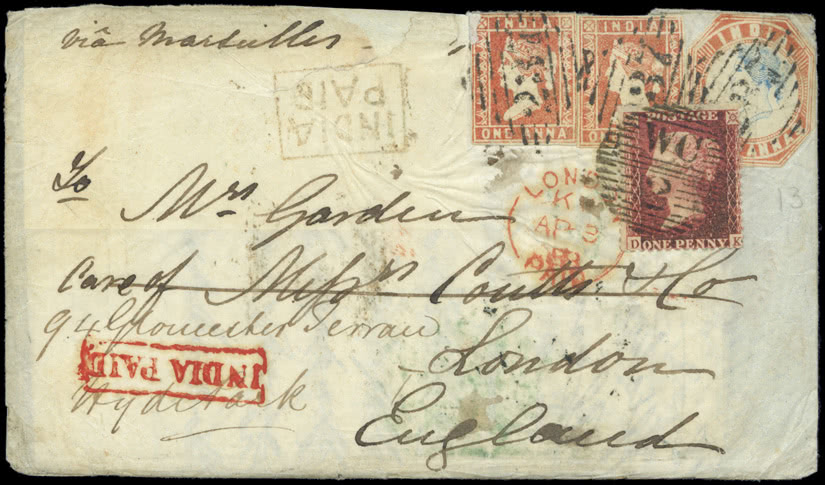 viâ Marseilles
INDIA
INDIA
INDIA
INDIA
PAID
ONE ANNA
ONE
POSTAGE
WC
2
D ONE PENNY K
13
LOND
K
AP 8
PAID
To
Mrs Garden
Care of Messrs Coutts & Co
94 Gloucester Terrace
London
INDIA PAID
Hyde Park
England